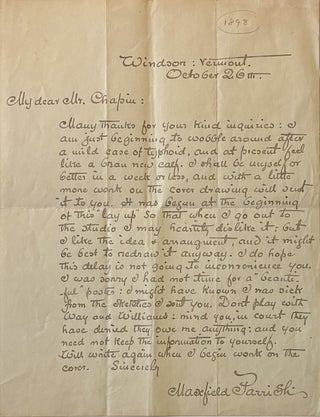 1898
Windsor : Vermont.
October 26th.
My dear Mr. Chapin :
Many thanks for your kind inquiries : I
am just beginning to wobble around after
a mild case of typhoid, and at present feel
like a bran new calf. I shall be myself or
better in a week or less, and with a little
more work on the cover drawing will send
it to you. It was begun at the beginning
of this "lay up" so that when I go out to
the studio I may heartily dislike it : but
I like the idea & arrangement, and it might
be best to redraw it anyway. I do hope
this delay is not going to inconvenience you.
I was sorry I had not time for a "beauti-
ful" poster : I might have known I was sick
from the sketches I sent you. Dont play with
Way and Williams : mind you, in court they
have denied they owe me anything : and you
need not keep the information to yourself.
Will write again when I begin work on the
cover. Sincerely
Maxfield Parrish